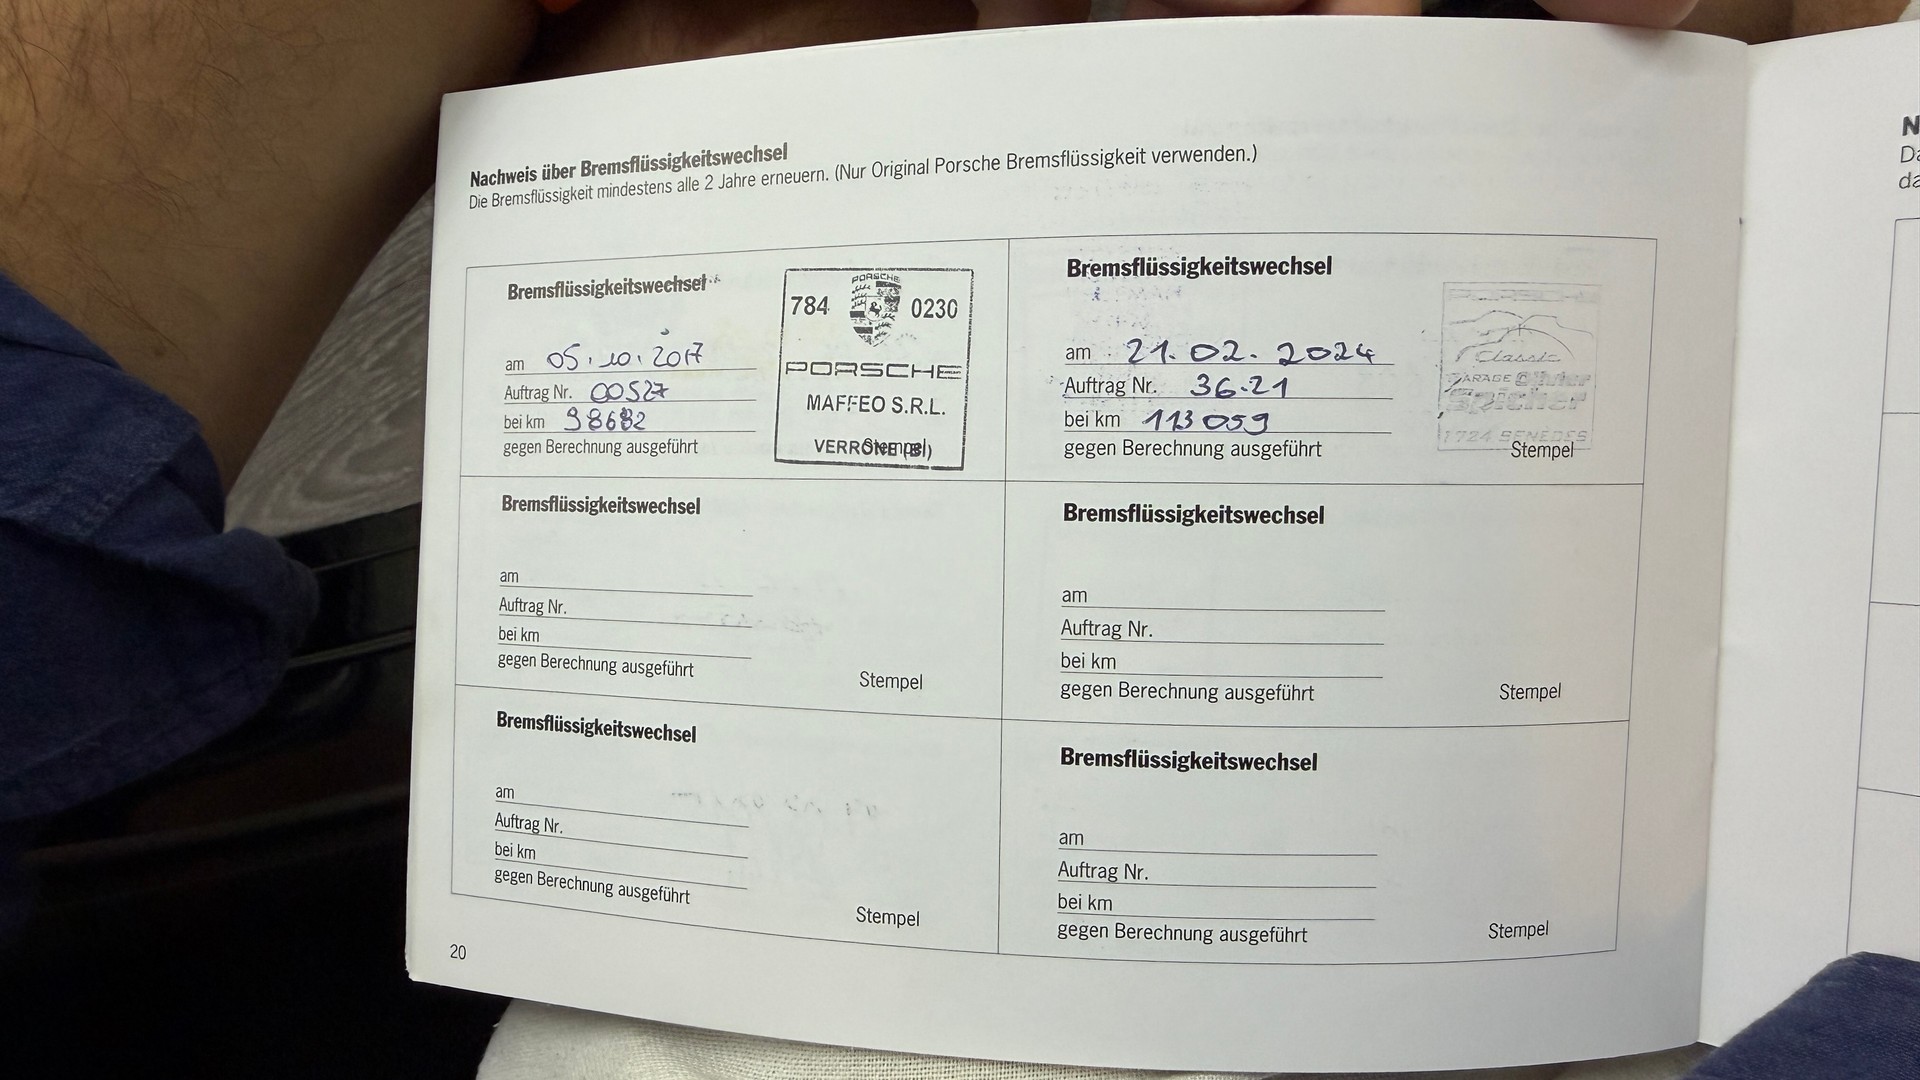 Nachweis über Bremsflüssigkeitswechsel
Die Bremsflüssigkeit mindestens alle 2 Jahre erneuern. (Nur Original Porsche Bremsflüssigkeit verwenden.)
Bremsflüssigkeitswechsel
am 05.10.2017
Auftrag Nr. 00527
bei km
gegen Berechnung ausgeführt
PORSCHE
784 0230
PORSCHE
MAFFEO S.R.L.
VERRONE (BI)
Stempel
Bremsflüssigkeitswechsel
am 21.02.2024
Auftrag Nr. 36-21
bei km 113059
gegen Berechnung ausgeführt
PORSCHE
Classic
GARAGE Olivier
Spicher
1724 SENEDES
Stempel
Bremsflüssigkeitswechsel
am
Auftrag Nr.
bei km
gegen Berechnung ausgeführt
Stempel
Bremsflüssigkeitswechsel
am
Auftrag Nr.
bei km
gegen Berechnung ausgeführt
Stempel
Bremsflüssigkeitswechsel
am
Auftrag Nr.
bei km
gegen Berechnung ausgeführt
Stempel
Bremsflüssigkeitswechsel
am
Auftrag Nr.
bei km
gegen Berechnung ausgeführt
Stempel
20
N
Da
da